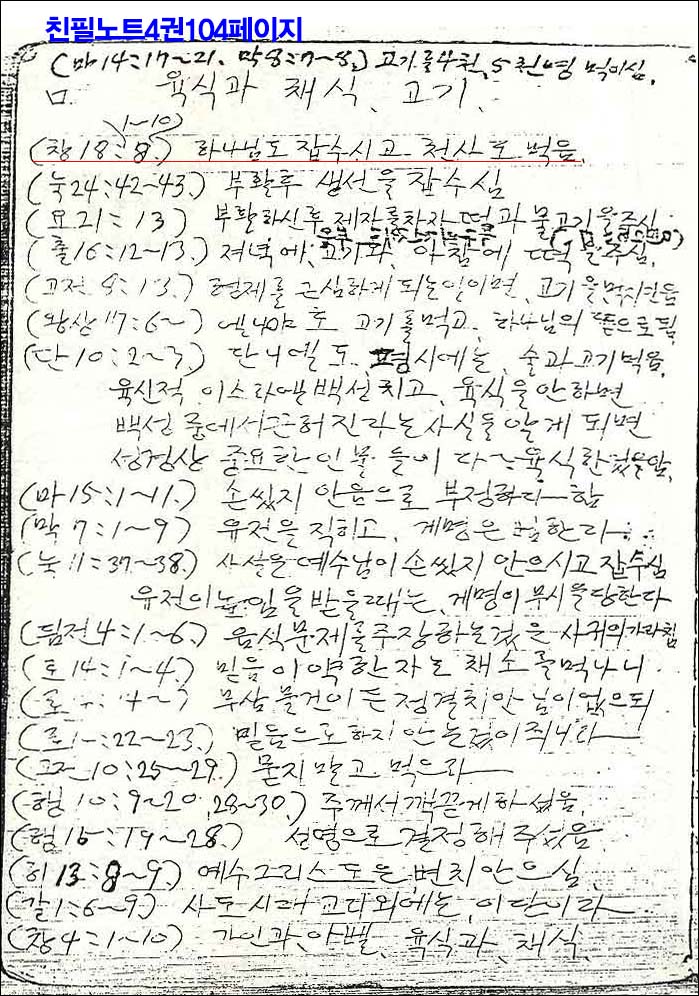 친필노트4권104페이지
(마14:17~21, 막8:7~8,) 고기를 4천, 5천명 먹이심.
ㅁ 육식과 채식, 고기,
1~10)
(창18:8,) 하나님도 잡수시고 천사도 먹음,
(눅24:42~43,) 부활후 생선을 잡수심
(요21:13) 부활하신후 제자를 찾자 떡과 물고기을 주심
(출16:12~13,) 저녁에, 고기와, 아침에 떡을 주심,
(고전8:13,) 형제를 근심하게 되는일이면, 고기을 먹지안음
(왕상17:6~) 엘니야로 고기를 먹고, 하나님의 뜻으로 됨
(단10:2~3,) 단니엘도 평시에는, 술과 고기 먹음,
육신적 이스라엘 백성치고, 육식을 안하면
백성 중에서 끈허진다는 사실을 알게 되면
성경상 중요한 인물들이 다~ 육식한 것을 앎,
(마15:1~11,) 손씼지 안음으로 부정하다~ 함
(막7:1~9) 유전을 직히고, 계명은 범한다~
(눅11:37~38,) 사실은 예수님이 손씼지 안으시고 잡수심
유전이 높임을 받을때는, 계명이 무시를 당한다
(딤전4:1~6,) 음식문제를 주장하는것은 사귀의 가라침
(로14:1~4,) 믿음이 약한 자는 채소를 먹나니
무삼 물건이든 정결치 안님이 없으되
:22~23,) 믿음으로 하지 안는 것이 죄니라~
(고전10:25~29,) 묻지 말고 먹으라~
(행10:9~20, 28~30,) 주께서 깩끝게 하셨음,
(행15:19~28,) 성명으로 결정해 주셨음
(히13:8~9,) 예수그리스도는, 변치 안으심,
(갈1:6~9,) 사도시대 교리외에는, 이단이라~
(창4:1~10) 가인과, 아벨, 육식과, 채식,